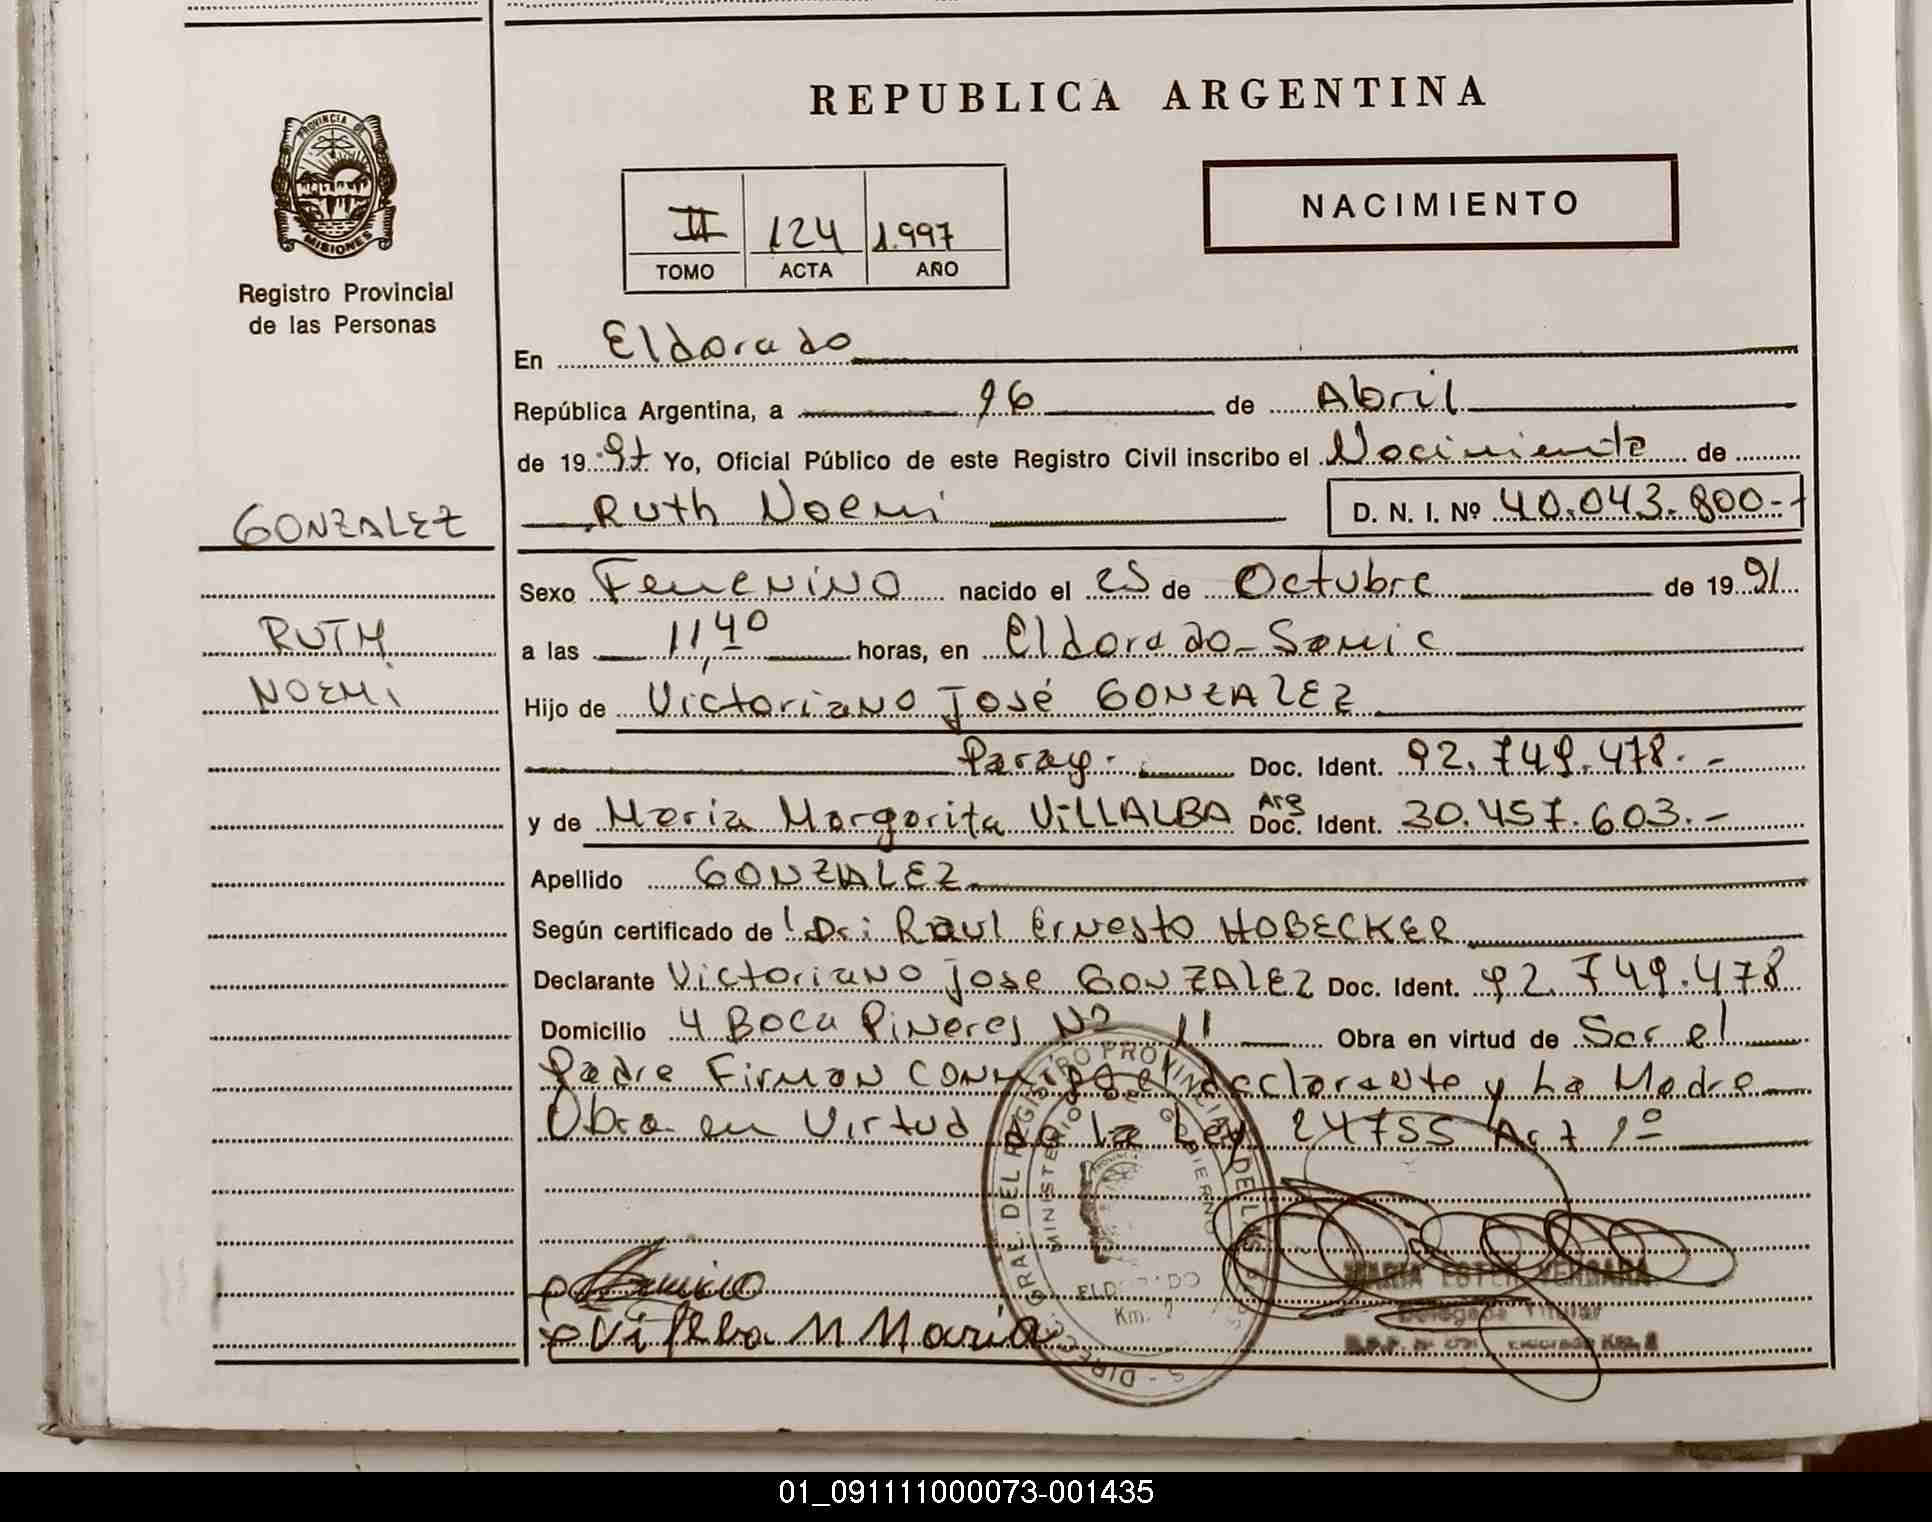 REPUBLICA ARGENTINA
PROVINCIA DE
MISIONES
Registro Provincial
de las Personas
II 124 1.997
TOMO ACTA AÑO
NACIMIENTO
En Eldorado
República Argentina, a 16 de Abril
de 1997 Yo, Oficial Público de este Registro Civil inscribo el Nacimiento de
GONZALEZ
Ruth Noemi D. N. I. Nº 40.043.800.-
Sexo Femenino nacido el 25 de Octubre de 1991
RUTH
a las 11,40 horas, en Eldorado-Samic
NOEMI
Hijo de Victoriano José GONZALEZ
Parag. Doc. Ident. 92.749.478.-
y de Maria Margarita VILLALBA Arg Doc. Ident. 30.457.603.-
Apellido GONZALEZ
Según certificado de Dr: Raul Ernesto HOBECKER
Declarante Victoriano Jose GONZALEZ Doc. Ident. 92.749.478
Domicilio 4 Boca Pineres Nº 11 Obra en virtud de Ser el
Padre Firman conmigo el declarante y La Madre
Obra en Virtud de la Ley 24755 Art 1º
DIREC. GRAL. DEL REGISTRO PROVINCIAL DE LAS
MINISTERIO DE GOBIERNO
ELDORADO
Km. 7
MARIA ESTER VERGARA
Delegada Titular
Villalba M Maria
01_091111000073-001435